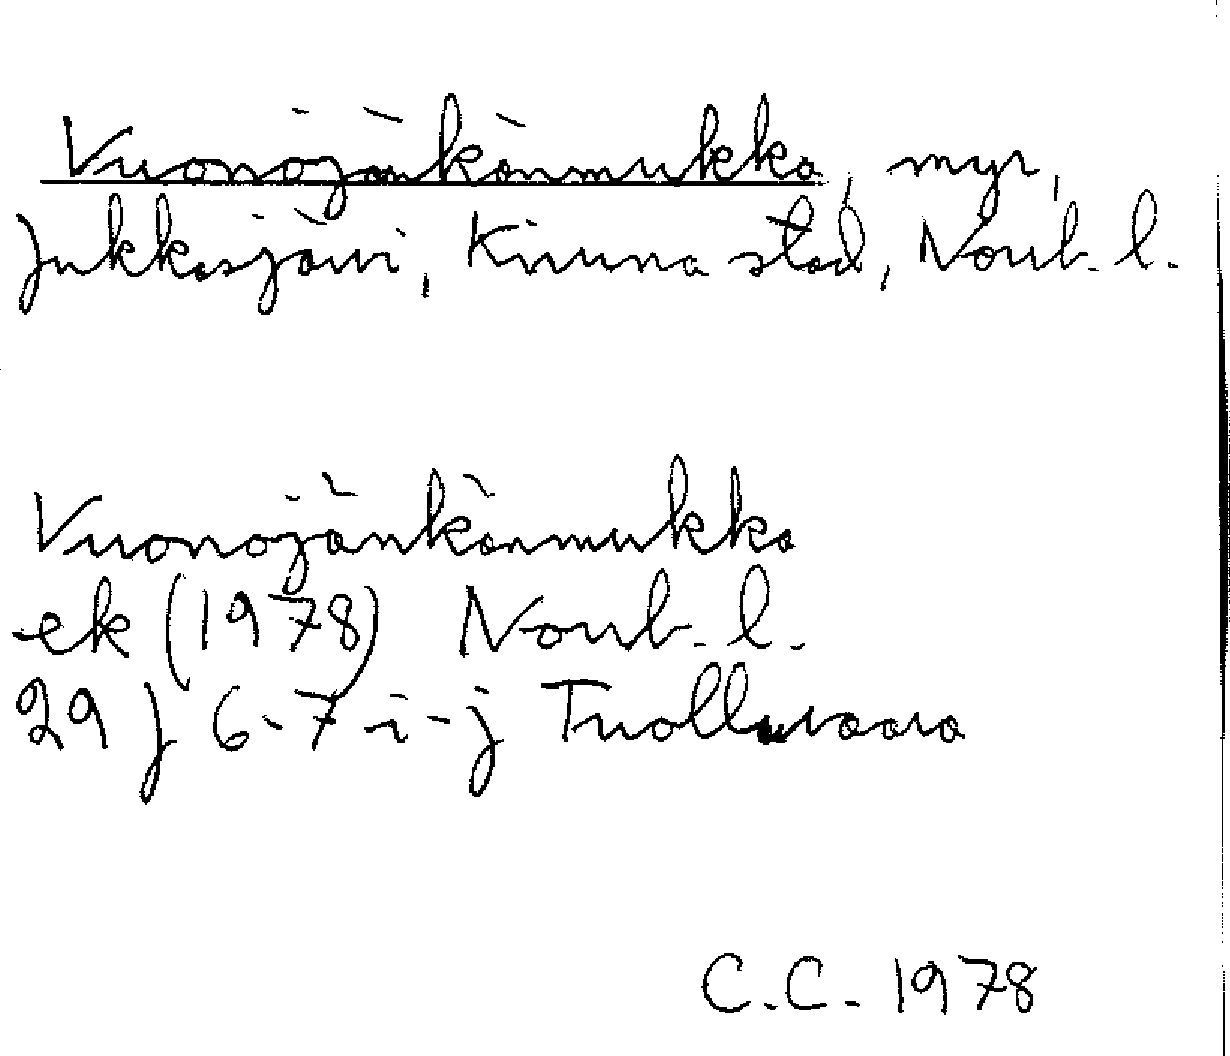 Vuonojänkänmukka, myr,
Jukkasjärvi, Kiruna stad, Norrb. l.
Vuonojänkänmukka
ek (1978) Norrb. l.
29 J 6-7 i-j Tuolluvaara
C.C. 1978